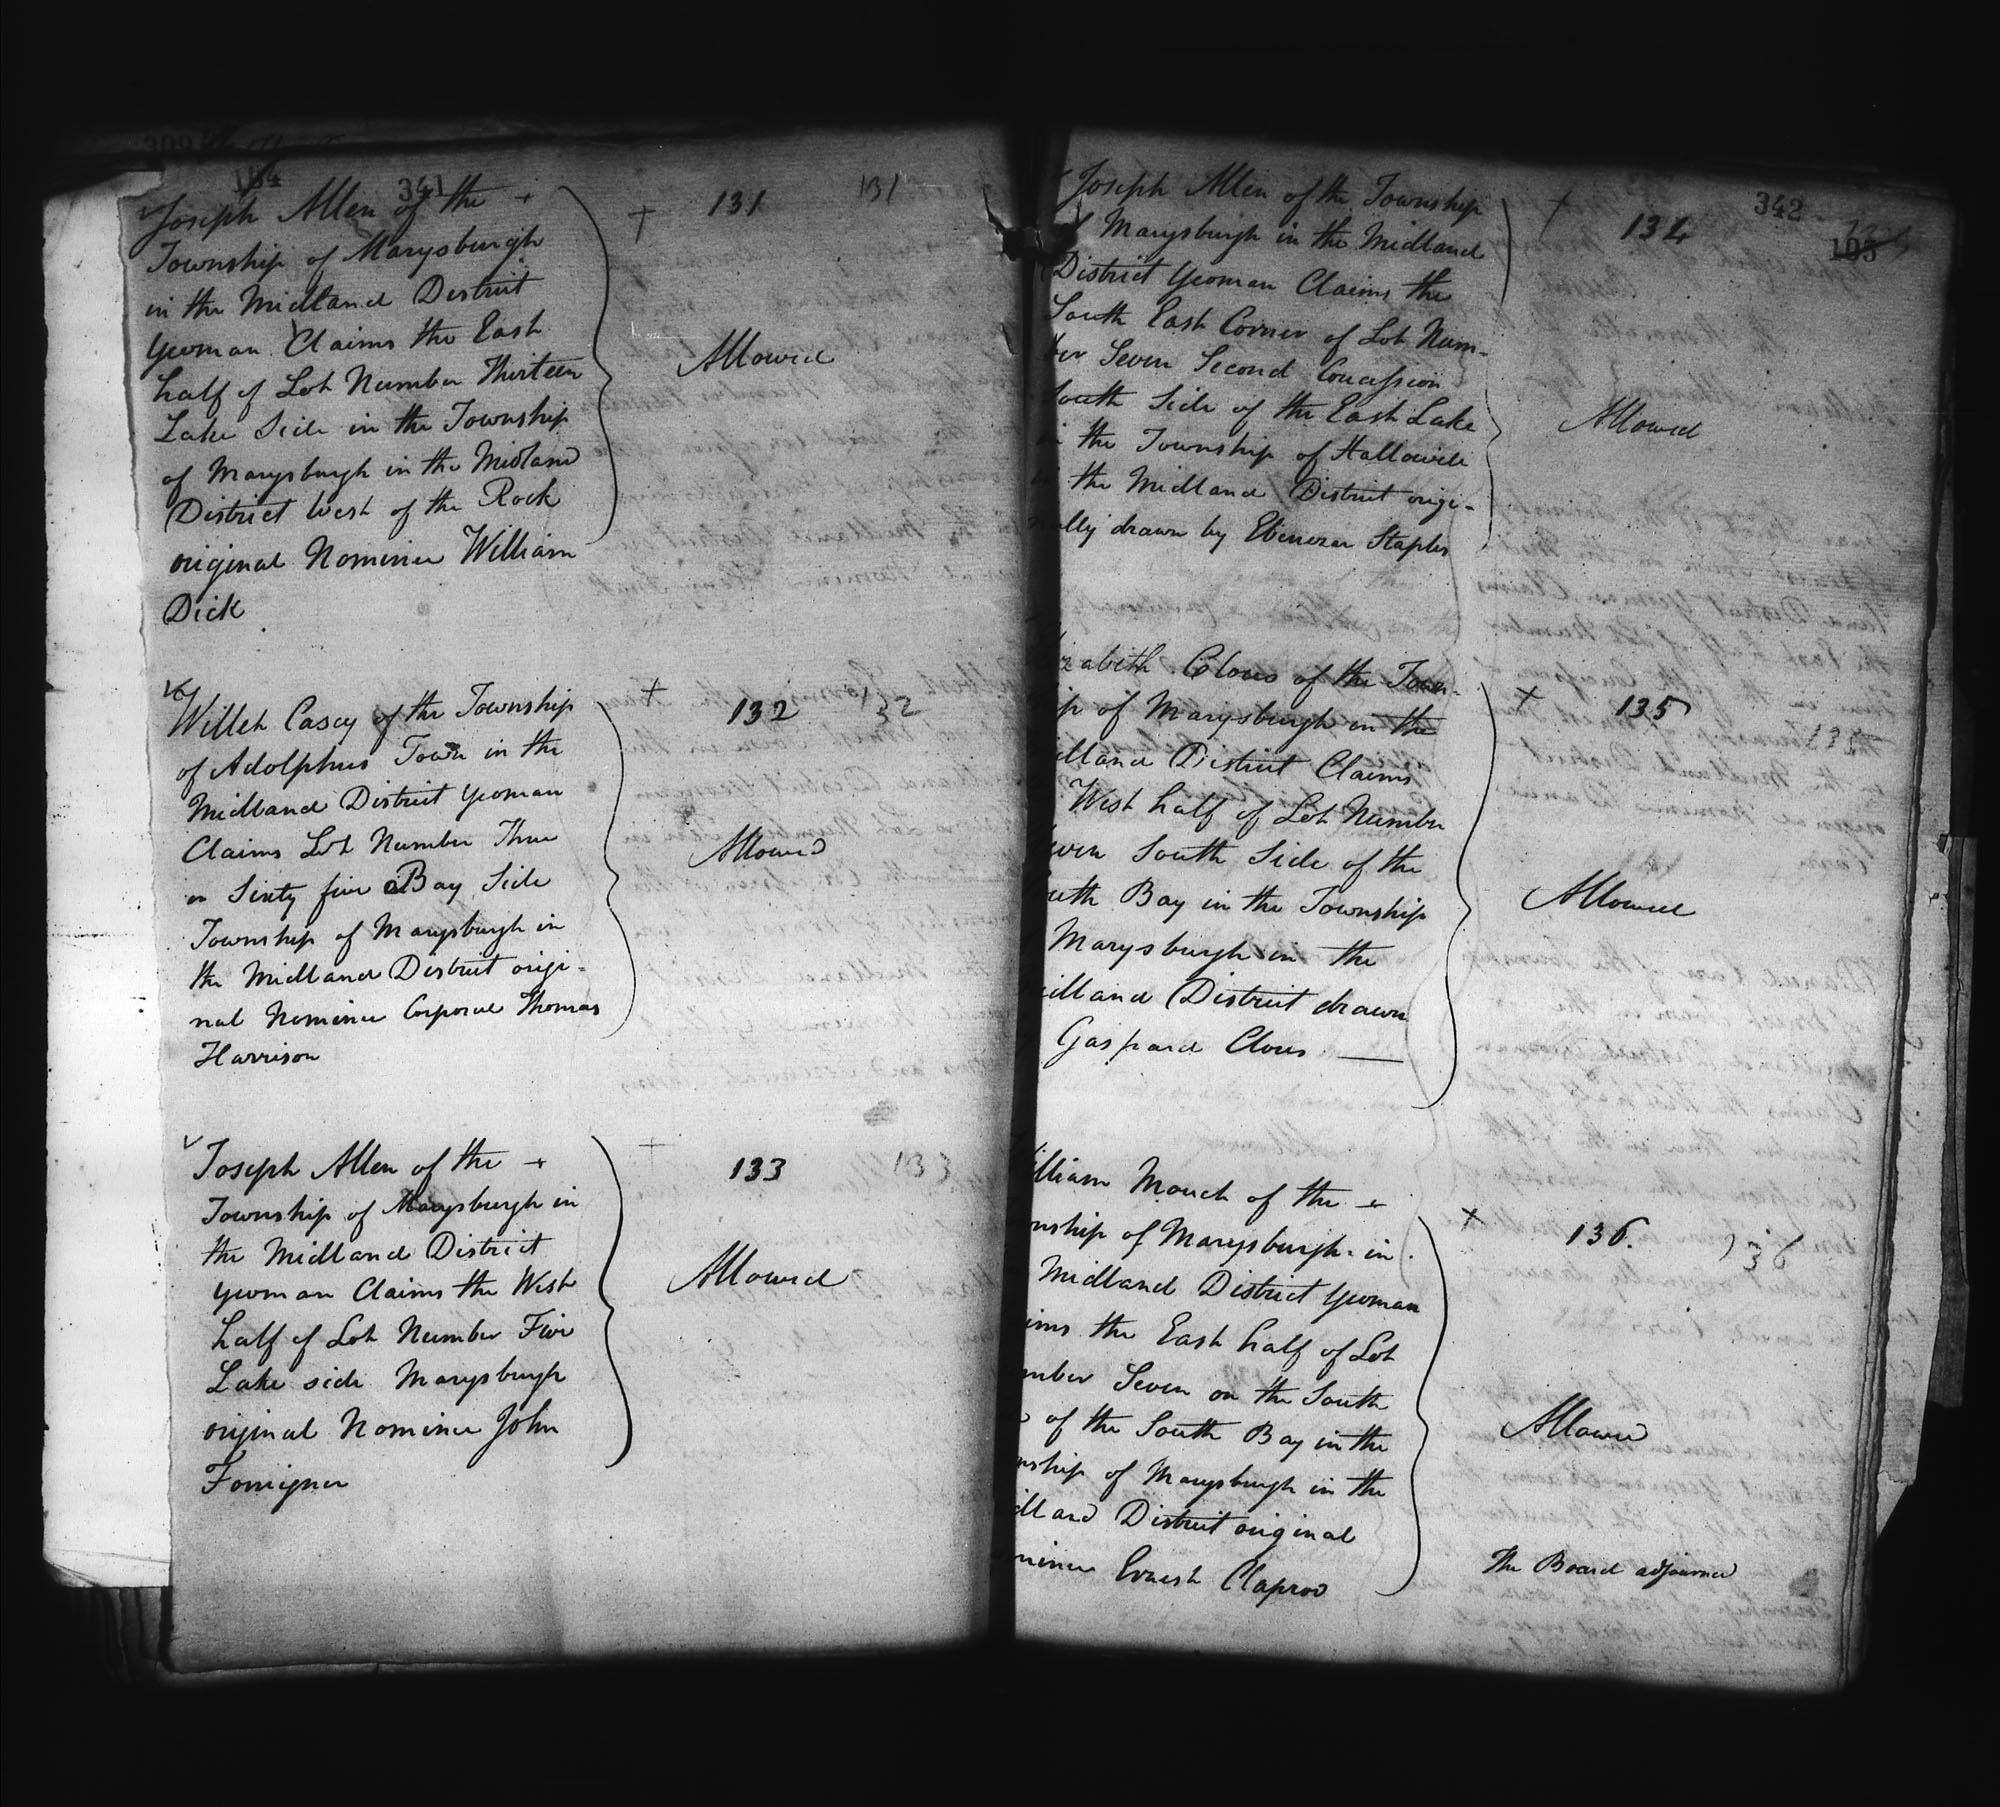 341
Joseph Allen of the +
Township of Marysburgh
in the Midland District
Yeoman Claims the East
half of Lot Number Thirteen
Lake Side in the Township
of Marysburgh in the Midland
District West of the Rock
original Nominee William
Dick
+ 131 131
Allowed
Willet Casey of the Township
of Adolphus Town in the
Midland District Yeoman
Claims Lot Number Three
in Sixty five Bay Side
Township of Marysburgh in
the Midland District origi-
nal Nominee Corporal Thomas
Harrison
+ 132 132
Allowed
Joseph Allen of the +
Township of Marysburgh in
the Midland District
Yeoman Claims the West
half of Lot Number Five
Lake side Marysburgh
original Nominee John
Forrigner
+ 133 133
Allowed
342
Joseph Allen of the Township
of Marysburgh in the Midland
District Yeoman Claims the
South East Corner of Lot Num-
ber Seven Second Concession
South Side of the East Lake
in the Township of Hallowell
in the Midland District origi-
nally drawn by Ebenezer Staples
+ 134
Allowed
zabeth Clous of the Town-
ip of Marysburgh in the
idland District Claims
West half of Lot Number
even South Side of the
outh Bay in the Township
Marysburgh in the
idland District drawn
Gaspard Clous —
+ 135 135
Allowed
William Mouck of the +
wnship of Marysburgh in
Midland District Yeoman
ims the East half of Lot
mber Seven on the South
e of the South Bay in the
nship of Marysburgh in the
idland District original
ominee Ernest Claprod
+ 136. 136
Allowed
The Board adjourned